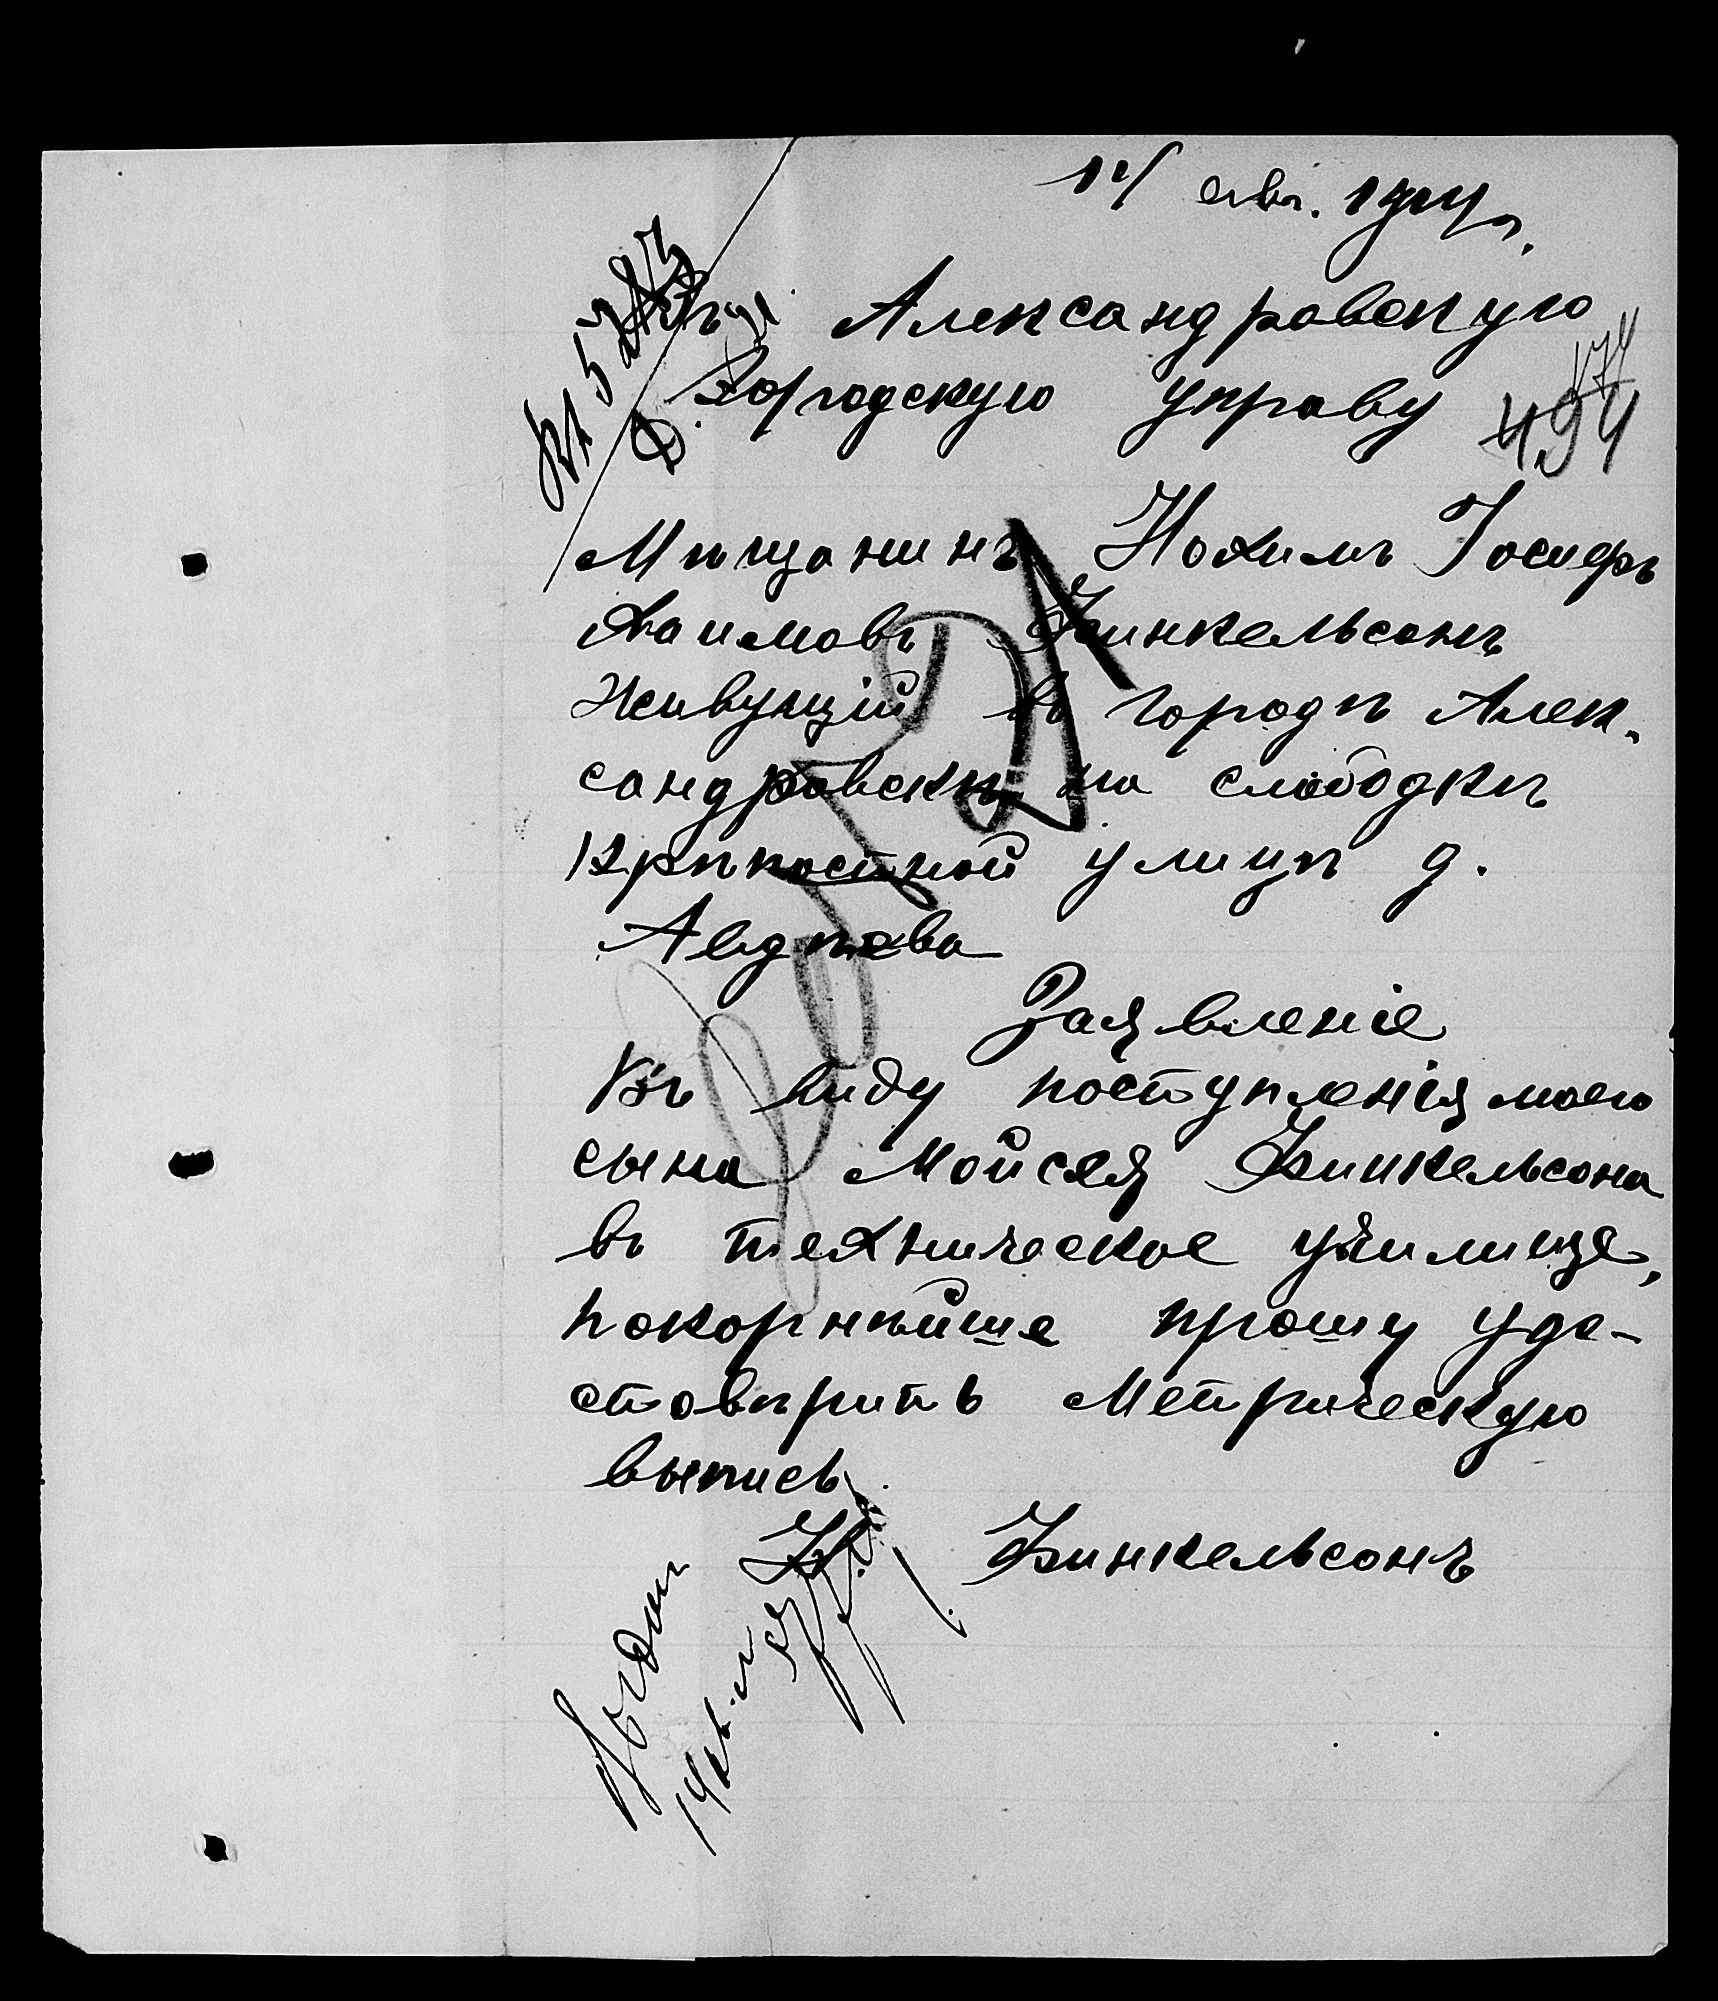 14 авг. 1914 г.
Въ Александровскую
Городскую управу
494
Мѣщанинъ Нохимъ Іосифъ
Хаимовъ Финкельсонъ
живущій въ городѣ Алек-
сандровскѣ на слободкѣ
Крѣпостной улицѣ д.
Авдѣева
Заявленіе
Въ виду поступленія моего
сына Мойсея Финкельсона
въ техническое училище,
покорнѣйше прошу удо-
стовѣрить Метрическую
выпись.
Н. Финкельсонъ